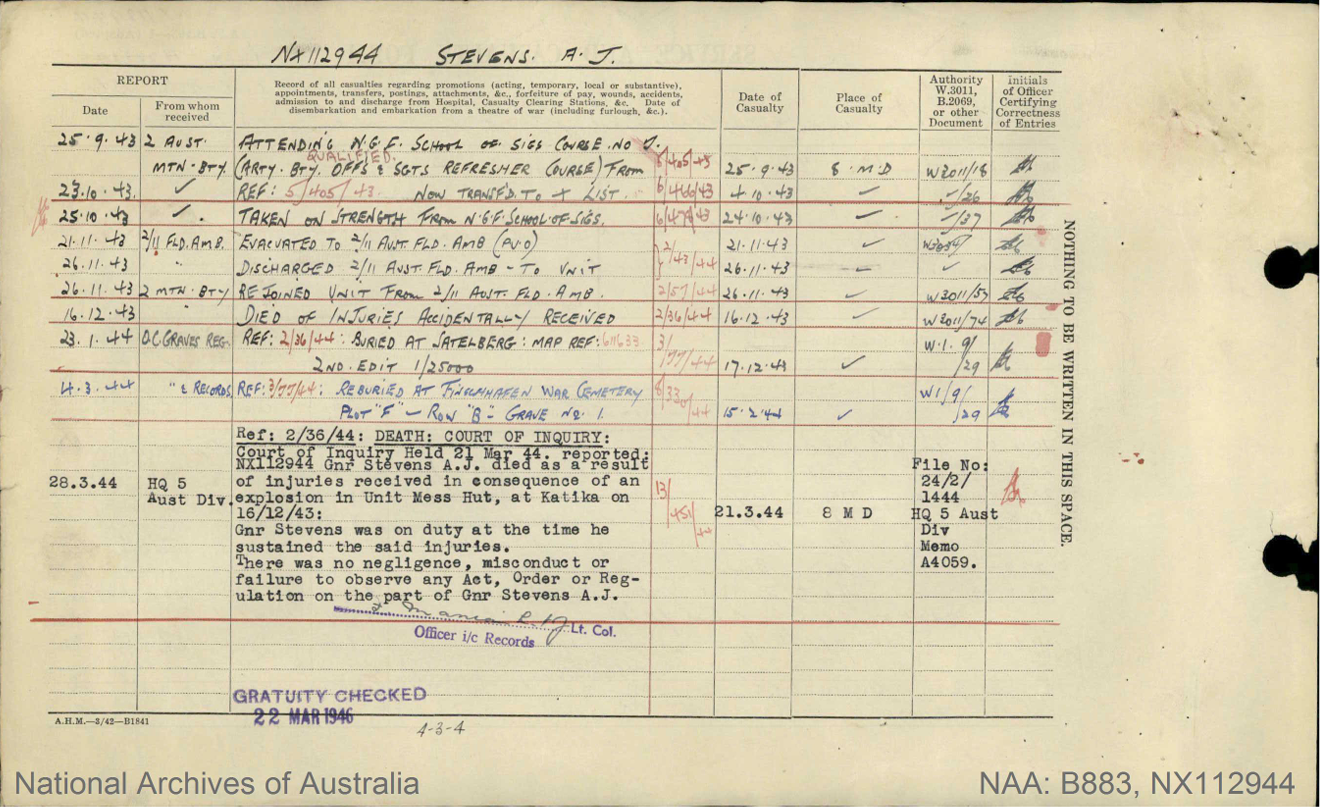 NX112944 STEVENS. A. J.
REPORT
Date
From whom received
Record of all casualties regarding promotions (acting, temporary, local or substantive),
appointments, transfers, postings, attachments, &c., forfeiture of pay, wounds, accidents,
admission to and discharge from Hospital, Casualty Clearing Stations, &c. Date of
disembarkation and embarkation from a theatre of war (including furlough, &c.).
Date of Casualty
Place of Casualty
Authority W.3011, B.2069, or other Document
Initials of Officer Certifying Correctness of Entries
25.9.43 2 AUST. ATTENDING N.G.F. SCHOOL OF SIGS COURSE. NO 7.
QUALIFIED.
MTN-BTY (ARTY. BTY. OFFS & SGTS REFRESHER COURSE) FROM 6/405/43 25.9.43 8.M.D W3011/18
23.10.43. ✓ REF: 5/405/43. NOW TRANSF'D. TO X LIST. 6/466/43 4.10.43 ✓ -/26
25.10.43 ✓. TAKEN ON STRENGTH FROM N.G.F. SCHOOL.OF.SIGS. 6/478/43 24.10.43 ✓ -/37
21.11.43 2/11 FLD.AMB. EVACUATED TO 2/11 AUST FLD. AMB (P.U.O) 2/43/44 21.11.43 ✓
26.11.43 " DISCHARGED 2/11 AUST. FLD. AMB - TO UNIT 26.11.43 ✓ ✓
26.11.43 2 MTN-BTY REJOINED UNIT FROM 2/11 AUST. FLD. AMB. 2/57/44 26.11.43 ✓ W3011/57
16.12.43 " DIED OF INJURIES ACCIDENTALLY RECEIVED 2/36/44 16.12.43 ✓ W3011/74
23.1.44 O.C GRAVES REG. REF: 2/36/44: BURIED AT SATELBERG: MAP REF: 611633 3/77/44 W.1. 9/29
2ND. EDIT 1/25000 17.12.43 ✓
4.3.44 " & RECORDS REF: 3/77/44: REBURIED AT FINSCHHAFEN WAR CEMETERY 8/330/44 W1/9/29
PLOT "F" - ROW "B" - GRAVE NO. 1. 15.2.44 ✓
Ref: 2/36/44: DEATH: COURT OF INQUIRY:
Court of Inquiry Held 21 Mar 44. reported:
NX112944 Gnr Stevens A.J. died as a result
28.3.44 HQ 5 Aust Div. of injuries received in consequence of an
explosion in Unit Mess Hut, at Katika on
16/12/43:
Gnr Stevens was on duty at the time he
sustained the said injuries.
There was no negligence, misconduct or
failure to observe any Act, Order or Reg-
ulation on the part of Gnr Stevens A.J.
13/451/44
21.3.44 8 M D
File No:
24/2/
1444
HQ 5 Aust
Div
Memo
A4059.
Lt. Col.
Officer i/c Records
GRATUITY CHECKED
22 MAR 1946
A.H.M.—3/42—B1841
4-3-4
NOTHING TO BE WRITTEN IN THIS SPACE.
National Archives of Australia
NAA: B883, NX112944